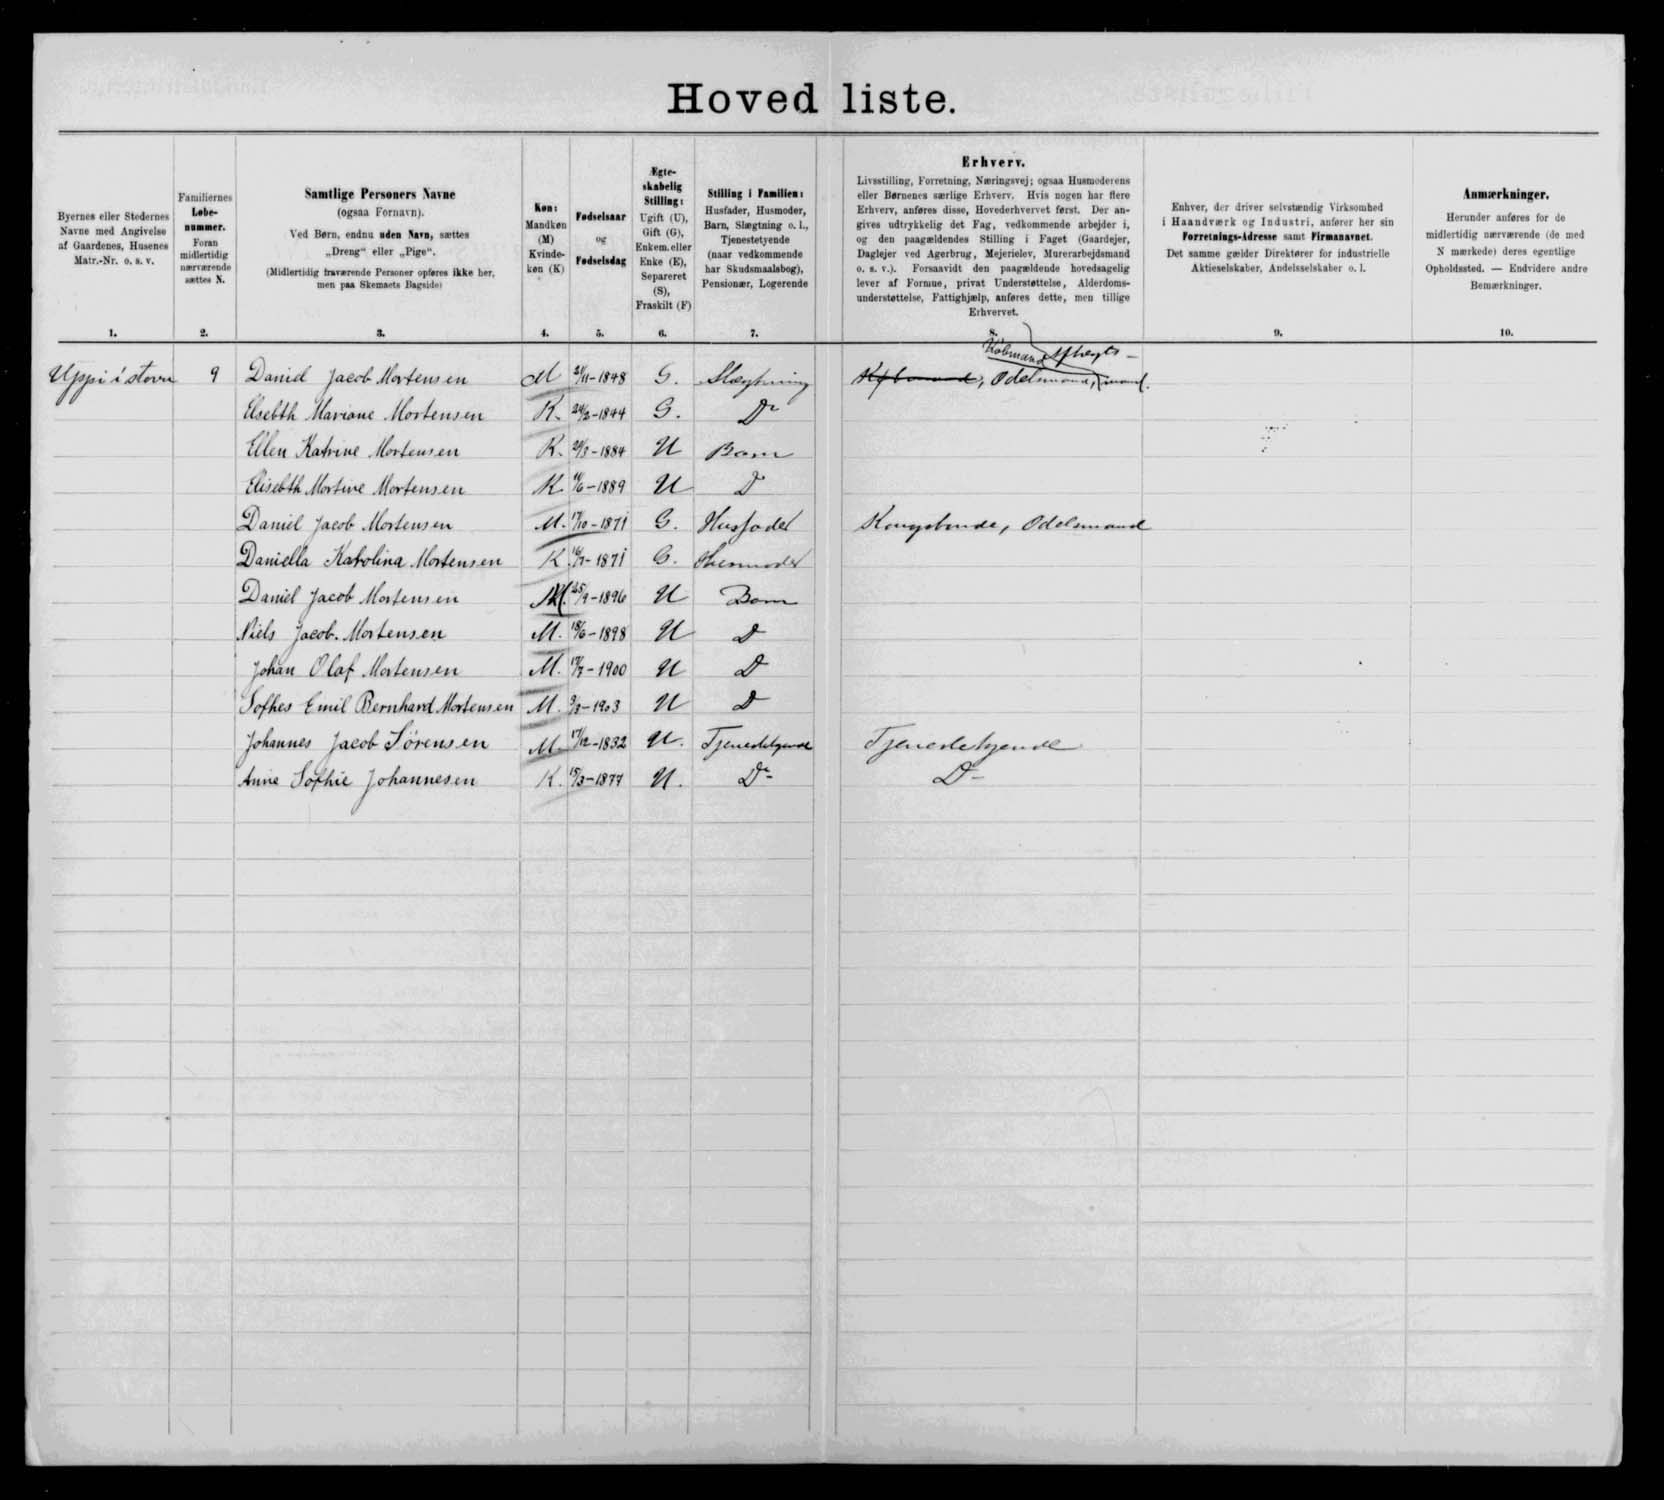 Hovedliste.
Byernes eller Stedernes
Navne med Angivelse
af Gaardenes, Husenes
Matr.-Nr. o. s. v.
1.
Familiernes
Løbe-
nummer.
Foran
midlertidig
nærværende
sættes N.
2.
Samtlige Personers Navne
(ogsaa Fornavn).
Ved Børn, endnu uden Navn, sættes
„Dreng“ eller „Pige“.
(Midlertidig fraværende Personer opføres ikke her,
men paa Skemaets Bagside)
3.
Køn:
Mandkøn
(M)
Kvinde-
køn (K)
4.
Fødselsaar
og
Fødselsdag
5.
Ægte-
skabelig
Stilling:
Ugift (U),
Gift (G),
Enkem. eller
Enke (E),
Separeret
(S),
Fraskilt (F)
6.
Stilling i Familien:
Husfader, Husmoder,
Barn, Slægtning o. l.,
Tjenestetyende
(naar vedkommende
har Skudsmaalsbog),
Pensionær, Logerende
7.
Erhverv.
Livsstilling, Forretning, Næringsvej; ogsaa Husmoderens
eller Børnenes særlige Erhverv. Hvis nogen har flere
Erhverv, anføres disse, Hovederhvervet først. Der an-
gives udtrykkelig det Fag, vedkommende arbejder i,
og den paagældendes Stilling i Faget (Gaardejer,
Daglejer ved Agerbrug, Mejerielev, Murerarbejdsmand
o. s. v.). Forsaavidt den paagældende hovedsagelig
lever af Formue, privat Understøttelse, Alderdoms-
understøttelse, Fattighjælp, anføres dette, men tillige
Erhvervet.
8.
Enhver, der driver selvstændig Virksomhed
i Haandværk og Industri, anfører her sin
Forretnings-Adresse samt Firmanavnet.
Det samme gælder Direktører for industrielle
Aktieselskaber, Andelsselskaber o. l.
9.
Anmærkninger.
Herunder anføres for de
midlertidig nærværende (de med
N mærkede) deres egentlige
Opholdssted. — Endvidere andre
Bemærkninger.
10.
Købmand Aftægts-
Uppi i stovu 9 Daniel Jacob Mortensen M 21/11-1848 G. Slægtning Købmand, Odelsmand, mand.
Elsebth Mariane Mortensen K. 24/2-1844 G. Do
Ellen Katrine Mortensen K. 21/3-1884 U Barn
Elisebth Mortine Mortensen K. 11/6-1889 U D
Daniel Jacob Mortensen M. 17/10-1871 G. Husfader Kongsbonde, Odelsmand
Daniella Karolina Mortensen K. 16/7-1871 G. Husmoder
Daniel Jacob Mortensen M. 25/9-1896 U Barn
Niels Jacob Mortensen M. 18/6-1898 U D
Johan Olaf Mortensen M. 17/7-1900 U D
Sofhes Emil Bernhard Mortensen M. 9/3-1903 U D
Johannes Jacob Sørensen M. 17/12-1832 U. Tjenestetyende Tjenestetyende
Anne Sofhie Johannesen K. 15/3-1877 U. Do- D-